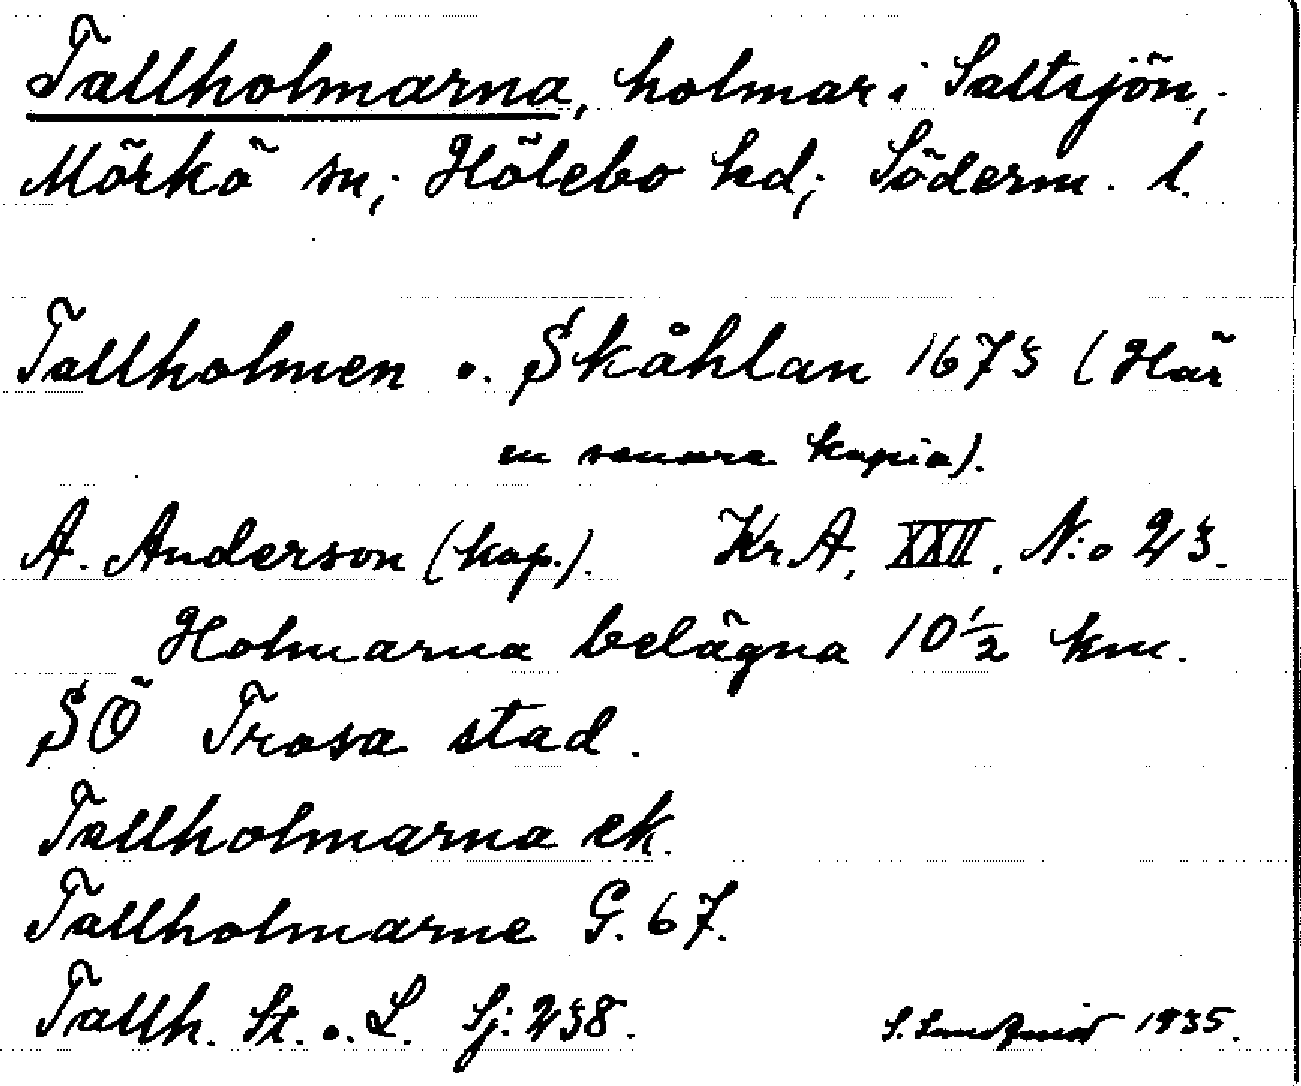 Tallholmarna, holmar i Saltsjön,
Mörkö sn; Hölebo hd; Söderm. l.
Tallholmen o. Skåhlan 1673 (Här
en senare kopia).
A. Anderson (kop.). Kr.A. XXII. N:o 23.
Holmarna belägna 10 1/2 km.
SÖ Trosa stad.
Tallholmarna ek.
Tallholmarne G. 67.
Tallh. St. o. L. Sj: 238.
S. 1935.